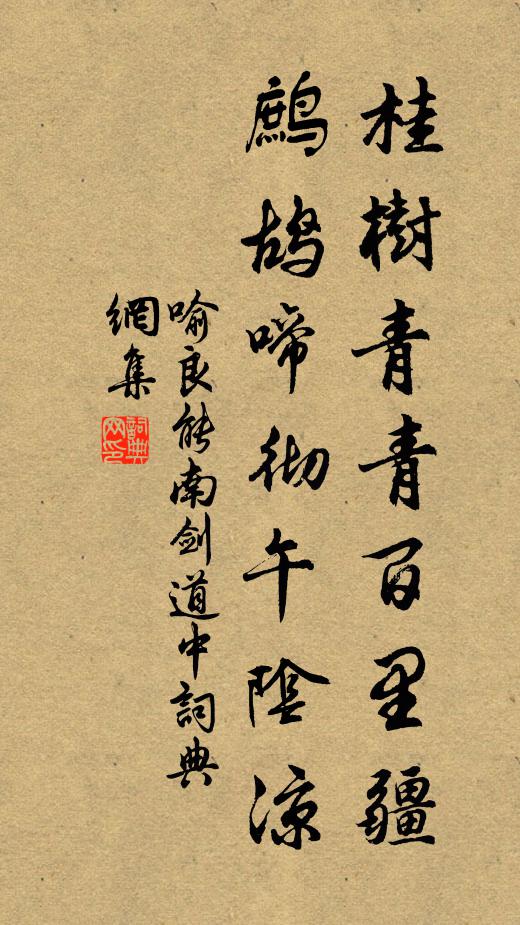 桂樹青青百里疆
鷓鴣啼彻午陰涼
喻良能南劍道中詞典
網集
詞典網印